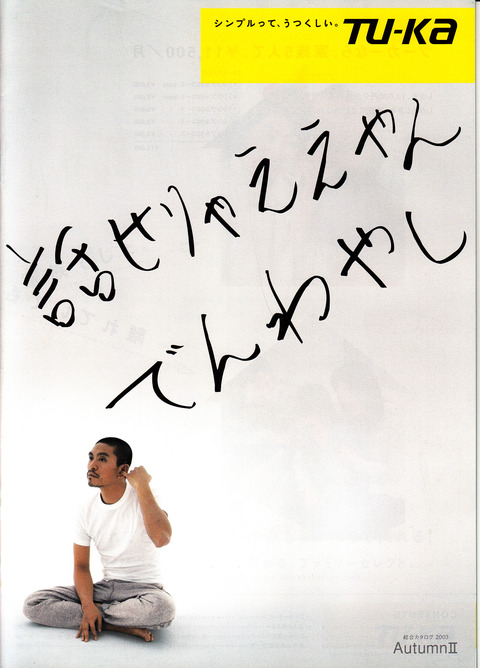 シンプルって、うつくしい。 TU-KA
話せりゃええやん
でんわやし
総合カタログ 2003
Autumn II